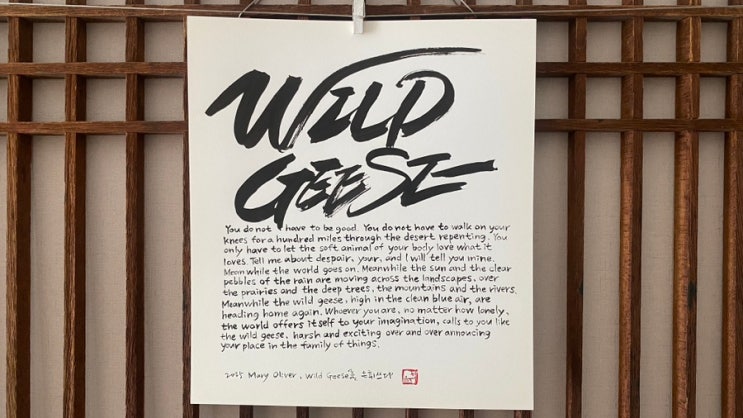 WILD
GEESE
You do not have to be good. You do not have to walk on your
knees for a hundred miles through the desert repenting. You
only have to let the soft animal of your body love what it
loves. Tell me about despair, your, and I will tell you mine.
Mean while the world goes on. Meanwhile the sun and the clear
pebbles of the rain are moving across the landscapes, over
the prairies and the deep trees, the mountains and the rivers.
Meanwhile the wild geese, high in the clean blue air, are
heading home again. Whoever you are, no matter how lonely,
the world offers itself to your imagination, calls to you like
the wild geese, harsh and exciting over and over annoucing
your place in the family of things.
2025 Mary Oliver, Wild Geese